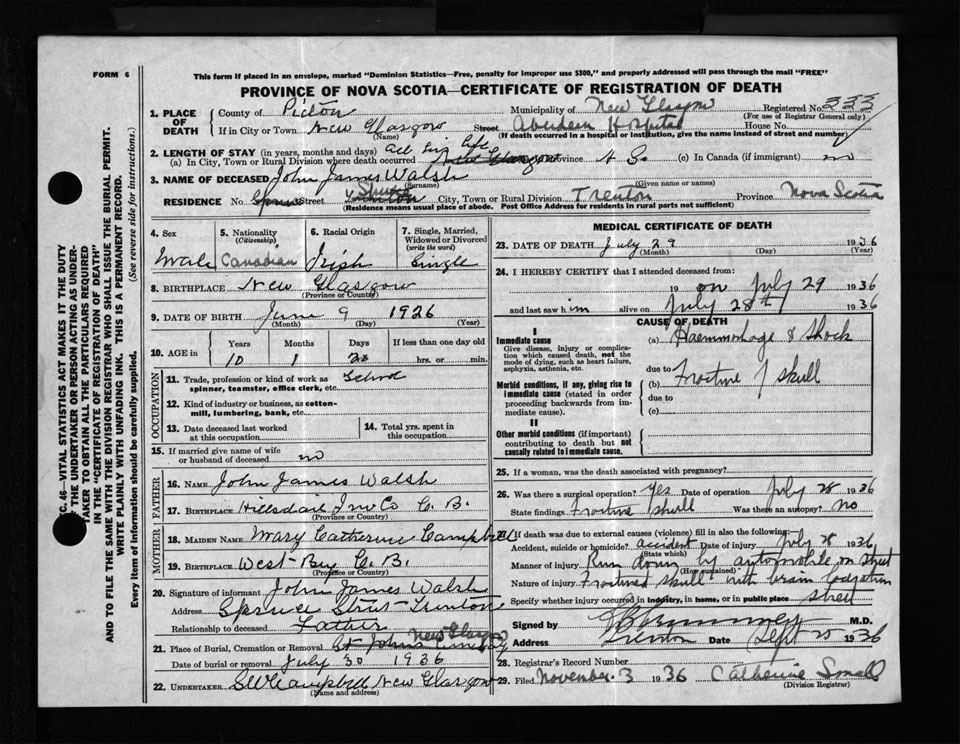 FORM 6
This form if placed in an envelope, marked "Dominion Statistics—Free, penalty for improper use $300," and properly addressed will pass through the mail "FREE"
PROVINCE OF NOVA SCOTIA—CERTIFICATE OF REGISTRATION OF DEATH
1. PLACE OF DEATH
County of Pictou Municipality of New Glasgow Registered No. 333
(For use of Registrar General only)
If in City or Town New Glasgow Street Aberdeen Hospital House No.
(Name) (If death occurred in a hospital or institution, give the name instead of street and number)
2. LENGTH OF STAY (in years, months and days) all his life
(a) In City, Town or Rural Division where death occurred New Glasgow Province N S. (c) In Canada (if immigrant) no
3. NAME OF DECEASED John James Walsh
(Surname) (Given name or names)
RESIDENCE No. Street Spruce City, Town or Rural Division Trenton Province Nova Scotia
(Residence means usual place of abode. Post Office Address for residents in rural parts not sufficient)
4. Sex
Male
5. Nationality
(Citizenship)
Canadian
6. Racial Origin
Irish
7. Single, Married, Widowed or Divorced
(write the word)
Single
8. BIRTHPLACE New Glasgow
(Province or Country)
9. DATE OF BIRTH June 9 1926
(Month) (Day) (Year)
10. AGE in
Years Months Days If less than one day old
10 1 20 hrs. or min.
OCCUPATION
11. Trade, profession or kind of work as School
spinner, teamster, office clerk, etc.
12. Kind of industry or business, as cotton-
mill, lumbering, bank, etc.
13. Date deceased last worked
at this occupation
14. Total yrs. spent in
this occupation
15. If married give name of wife
or husband of deceased no
FATHER
16. NAME John James Walsh
17. BIRTHPLACE Hillsdale Inv Co C. B.
(Province or Country)
MOTHER
18. MAIDEN NAME Mary Catherine Campbell
19. BIRTHPLACE West-Bay C. B.
(Province or Country)
20. Signature of informant John James Walsh
Address Spruce Street - Trenton
Relationship to deceased Father
21. Place of Burial, Cremation or Removal St Johns Cemetery New Glasgow
Date of burial or removal July 30 1936
22. UNDERTAKER Campbell New Glasgow
(Name and address)
MEDICAL CERTIFICATE OF DEATH
23. DATE OF DEATH July 29 1936
(Month) (Day) (Year)
24. I HEREBY CERTIFY that I attended deceased from:
19 on July 29 1936
and last saw him alive on July 28th 1936
CAUSE OF DEATH
I
Immediate cause
Give disease, injury or complica-
tion which caused death, not the
mode of dying, such as heart failure,
asphyxia, asthenia, etc.
(a) Haemmorhage & Shock
due to
Morbid conditions, if any, giving rise to
immediate cause (stated in order
proceeding backwards from im-
mediate cause).
(b) Fracture of skull
due to
(c)
II
Other morbid conditions (if important)
contributing to death but not
causally related to immediate cause.
25. If a woman, was the death associated with pregnancy?
26. Was there a surgical operation? Yes Date of operation July 28 1936
State findings Fracture skull Was there an autopsy? No
27. If death was due to external causes (violence) fill in also the following:
Accident, suicide or homicide? accident Date of injury July 28 1936
(State which)
Manner of injury Run down by automobile on street
(How sustained)
Nature of injury Fractured skull with brain laceration
Specify whether injury occurred in industry, in home, or in public place street
Signed by M.D.
Address Trenton Date Sept 20 1936
28. Registrar's Record Number
29. Filed November 3 1936 Catherine Small
(Division Registrar)
SEC. 46—VITAL STATISTICS ACT MAKES IT THE DUTY
OF THE UNDERTAKER OR PERSON ACTING AS UNDER-
TAKER TO OBTAIN ALL THE PARTICULARS REQUIRED
IN THE "CERTIFICATE OF REGISTRATION OF DEATH"
AND TO FILE THE SAME WITH THE DIVISION REGISTRAR WHO SHALL ISSUE THE BURIAL PERMIT.
WRITE PLAINLY WITH UNFADING INK. THIS IS A PERMANENT RECORD.
Every item of information should be carefully supplied. (See reverse side for instructions.)